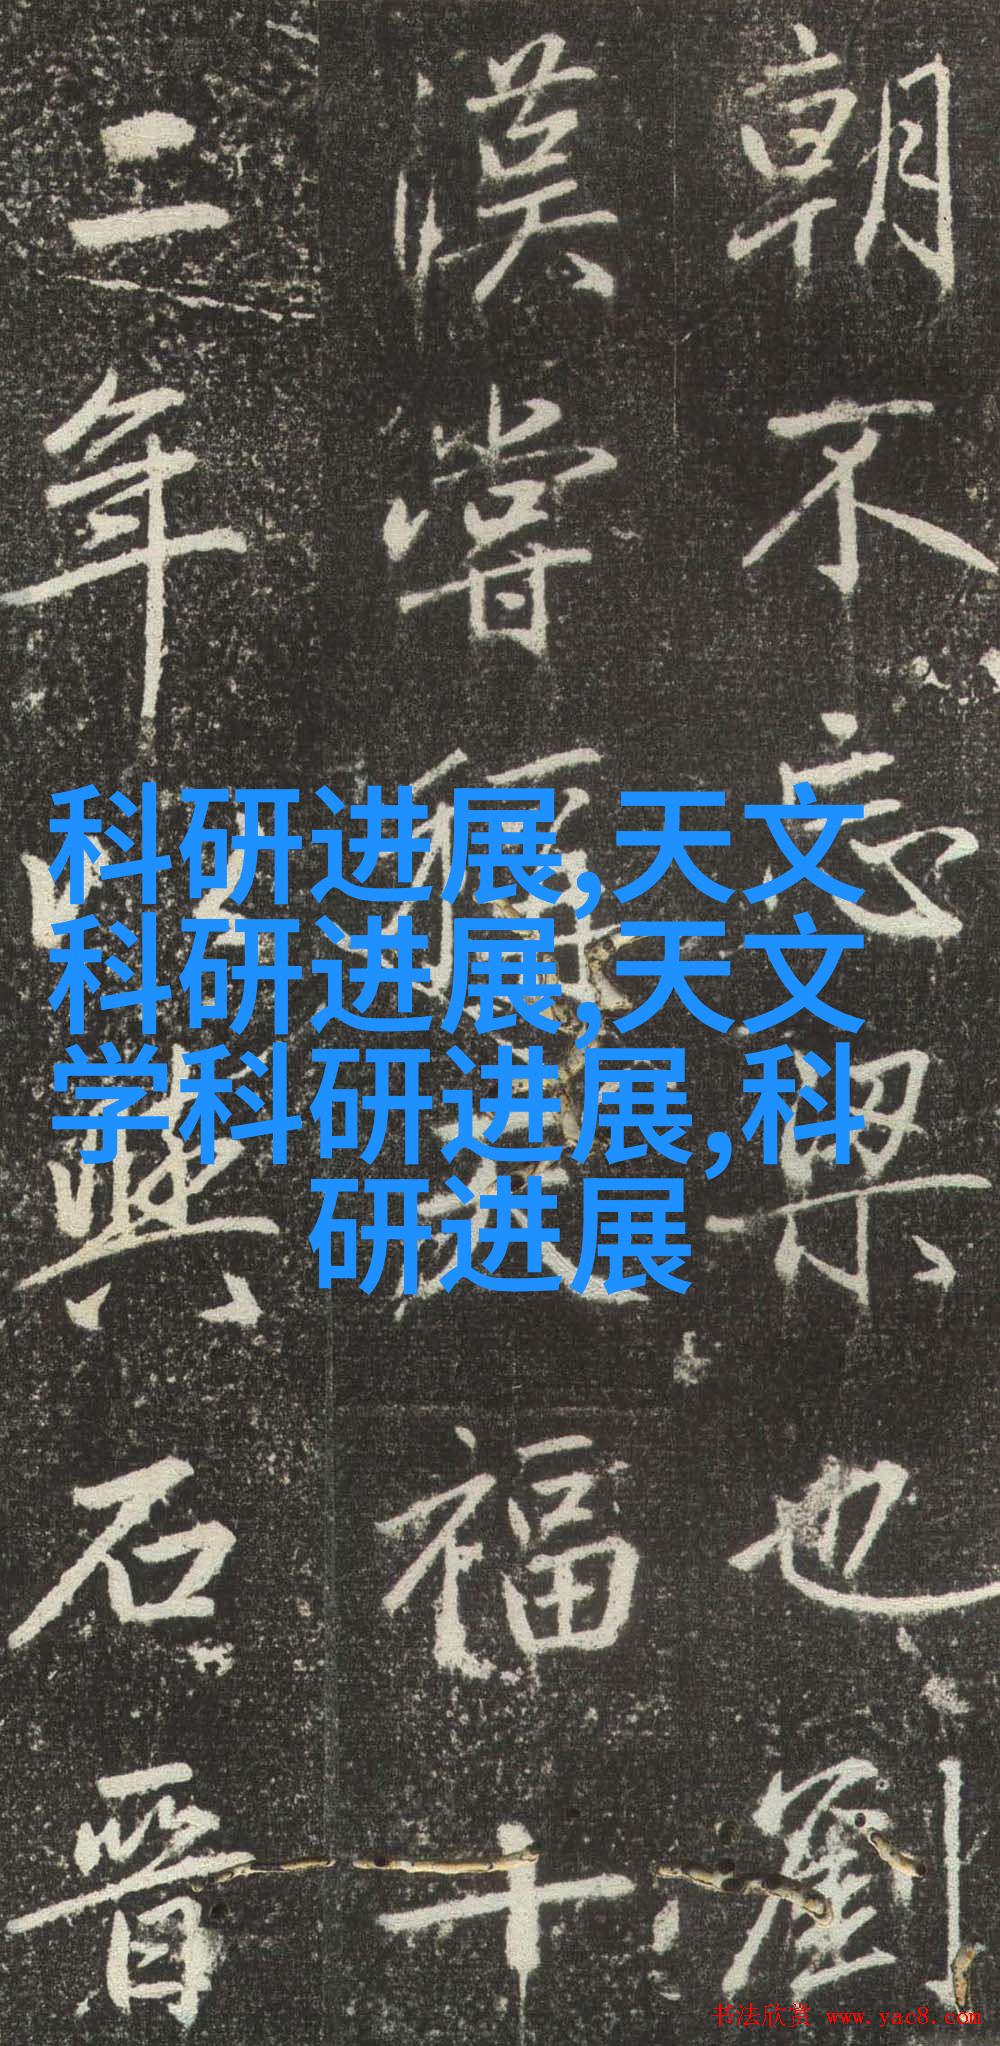 朝不忘梁也劉
漢嘗稱天福十
二年與石晉
科研进展,天文
科研进展,天文
学科研进展,科
研进展
书法欣赏 www.yac8.com